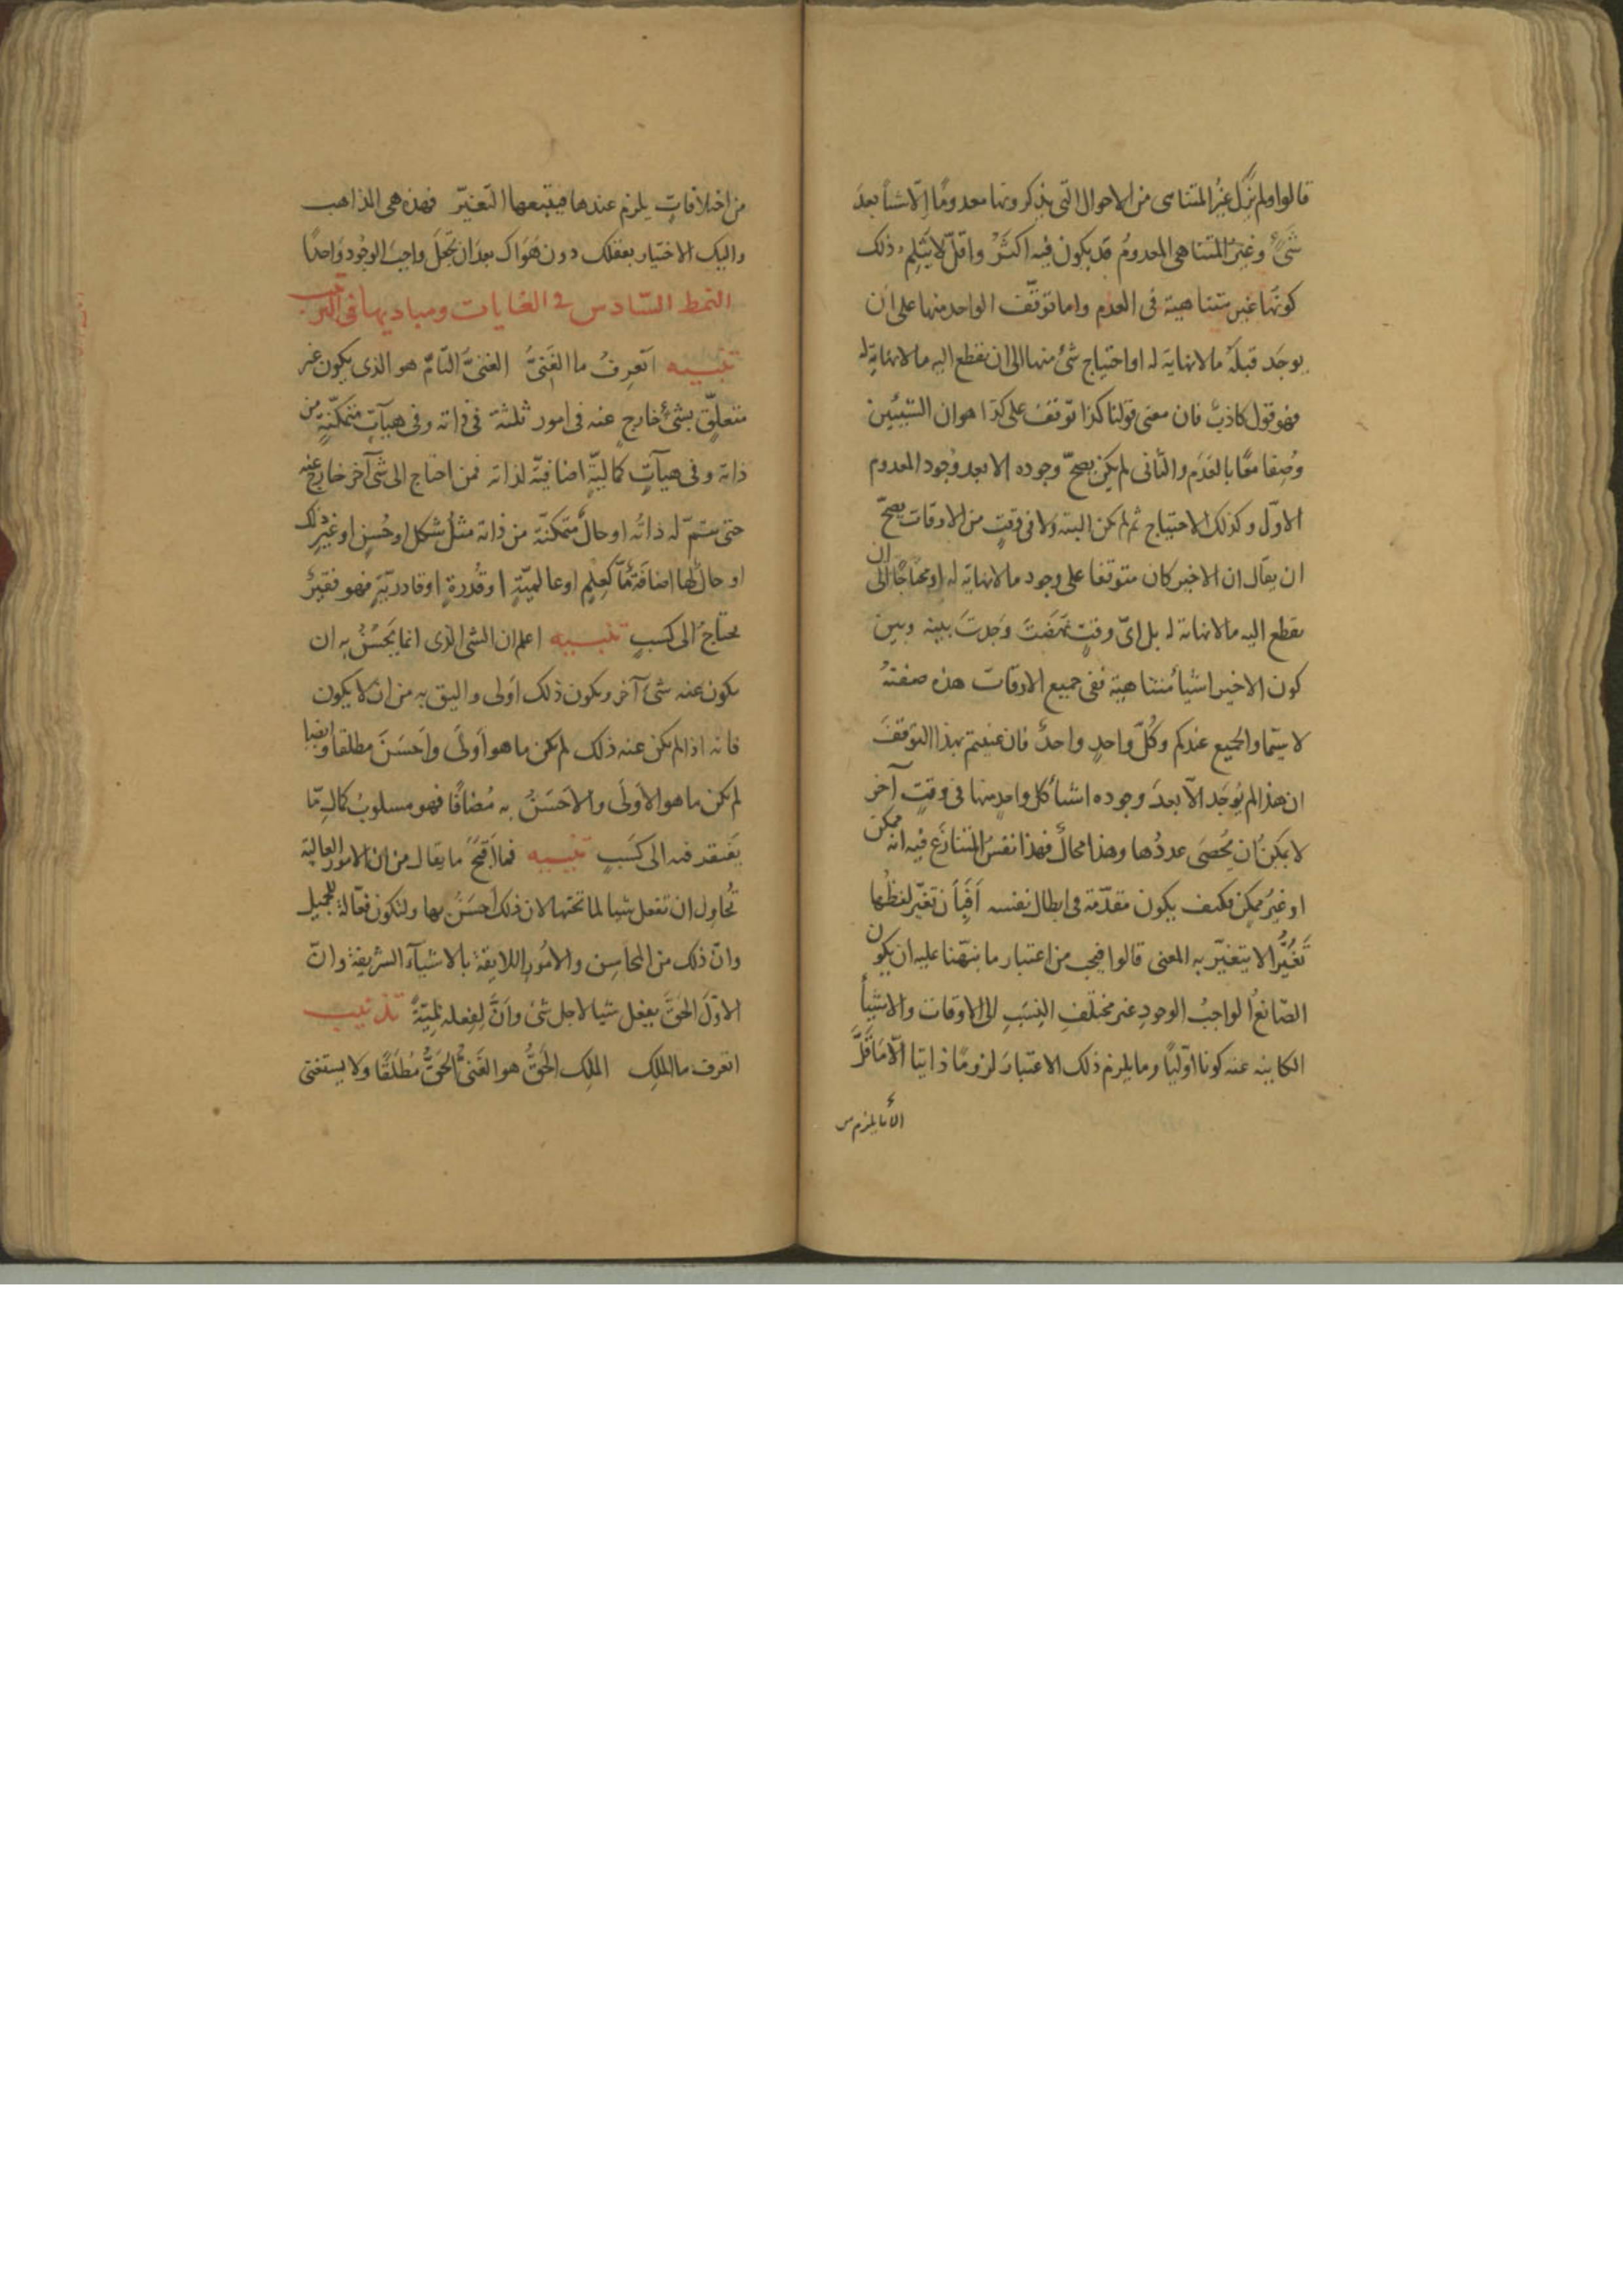 قالوا ولم يزل غيرُ المتناهى من الاحوال التى يذكرونها معدومًا الّا شيأ بعدَ
شىءٍ وغيرُ المتناهى المعدومُ قد يكون فيه اكثرُ واقلّ لا يَثلِم ذلك
كونَها غير متناهية فى العدم واما توقّف الواحد منها على ان
يوجَد قبلَهُ ما لا نهاية له او احتياج شئ منها الى ان نقطع اليه ما لا نهاية له
فهو قول كاذبٌ فان معنى قولنا كذا توقف على كذا هو ان الشيئين
وُصِفا معًا بالعَدَم والثانى لم يكن يصحّ وجوده الا بعد وُجود المعدوم
الاوّل وكذلك الاحتياج ثم لم يكن البتة ولا فى وقتٍ من الاوقات يصحّ
ان يقال ان الاخير كان متوقفا على وجود ما لا نهاية له او محتاجًا الى ان
يقطع اليه ما لا نهاية له بل اىّ وقتٍ فرَضتَ وَجدتَ بينه وبين
كون الاخير اشيأ متناهية ففى جميع الاوقات هذه صفتهُ
لا سيّما والجميع عندكم وكُلّ واحدٍ واحدٌ فان عنيتم بهذا التوقّفَ
ان هذا لم يُوجَد الّا بعدَ وجوده اشيأ كل واحد منها فى وقتٍ آخر
لا يمكن ان يُحصَى عددُها وهذا محالٌ فهذا نفسُ المتنازَع فيه انه ممكن
او غيرُ ممكنٍ فكيف يكون مقدّمة فى ابطال نفسه اَفَبِأن تغيّر لفظُها
تَغيُّرًا لا يتغيّر به المعنى قالوا فيجب من اعتبار ما نبّهنا عليه ان يكون
الصّانعُ الواجبُ الوجودِ غير مختلفِ النِسَبِ الى الاوقات والاشيأ
الكاينه عنه كونا اوّليًا وما يلزم ذلك الاعتبارَ لزومًا ذاتيا الّا
الّا ما يلزم من
من اختلافاتٍ يلزم عندها فيتبعها التغيّر فهذه هى المذاهب
واليك الاختيار بعقلك دون هَوَاك بعد ان تجعَلَ واجبَ الوجُود وَاحدًا
النمط السّادس فى الغايات ومباديها وفى الترتيب
تنبيه اَتعرِفُ ما الغَنِىُّ الغنىُّ التامُّ هو الذى يكون غير
متعلّق بشئ خارجٍ عنه فى امور ثلثة فى ذاته وفى هيآتٍ متمكّنةٍ من
ذاته وفى هيآتٍ كماليّةٍ اضافيّة لذاته فمن احتاج الى شىٔ آخر خارج عنه
حتى يتمّ له ذاتُه او حالٌ متمكنّة من ذاته مثل شكل او حُسنٍ او غير ذلك
او حال لها اضافةٌ مّا كعِلمٍ او عالميّةٍ او قُدرةٍ او قادريّةٍ فهو فقيرٌ
يحتاجُ الى كسبٍ تنبيه اعلم ان الشئ الذى انما يَحسُنُ به ان
يكون عنه شئ آخر ويكون ذلك اَولى واليق به من ان لا يكون
فانه اذا لم يكن عنه ذلك لم يكن ما هو اَولَى واَحسَنَ مطلقا وايضا
لم يكن ما هو الاَولَى والاَحسَنُ به مُضافًا فهو مسلوبُ كمالٍ مّا
يَفتقد فيه الى كَسَبٍ تنبيه فما اَقبَحَ ما يقال من ان الامور العالية
تُحاوِل ان تفعل شيا لما تحتها لان ذلك احسَنُ بها ولتكون فعّالةً للجميل
وانّ ذلك من المحاسِن والاُمُور اللايقة بالاشيآء الشريفة وانّ
الاوّلَ الحَقَّ يفعل شيا لاجل شئ وانَّ لِفعله لميّةً تذنيب
اتعرف ما الملِك الملِك الحَقُّ هو الغَنىُّ الحَقُّ مُطلَقًا ولا يستغنى